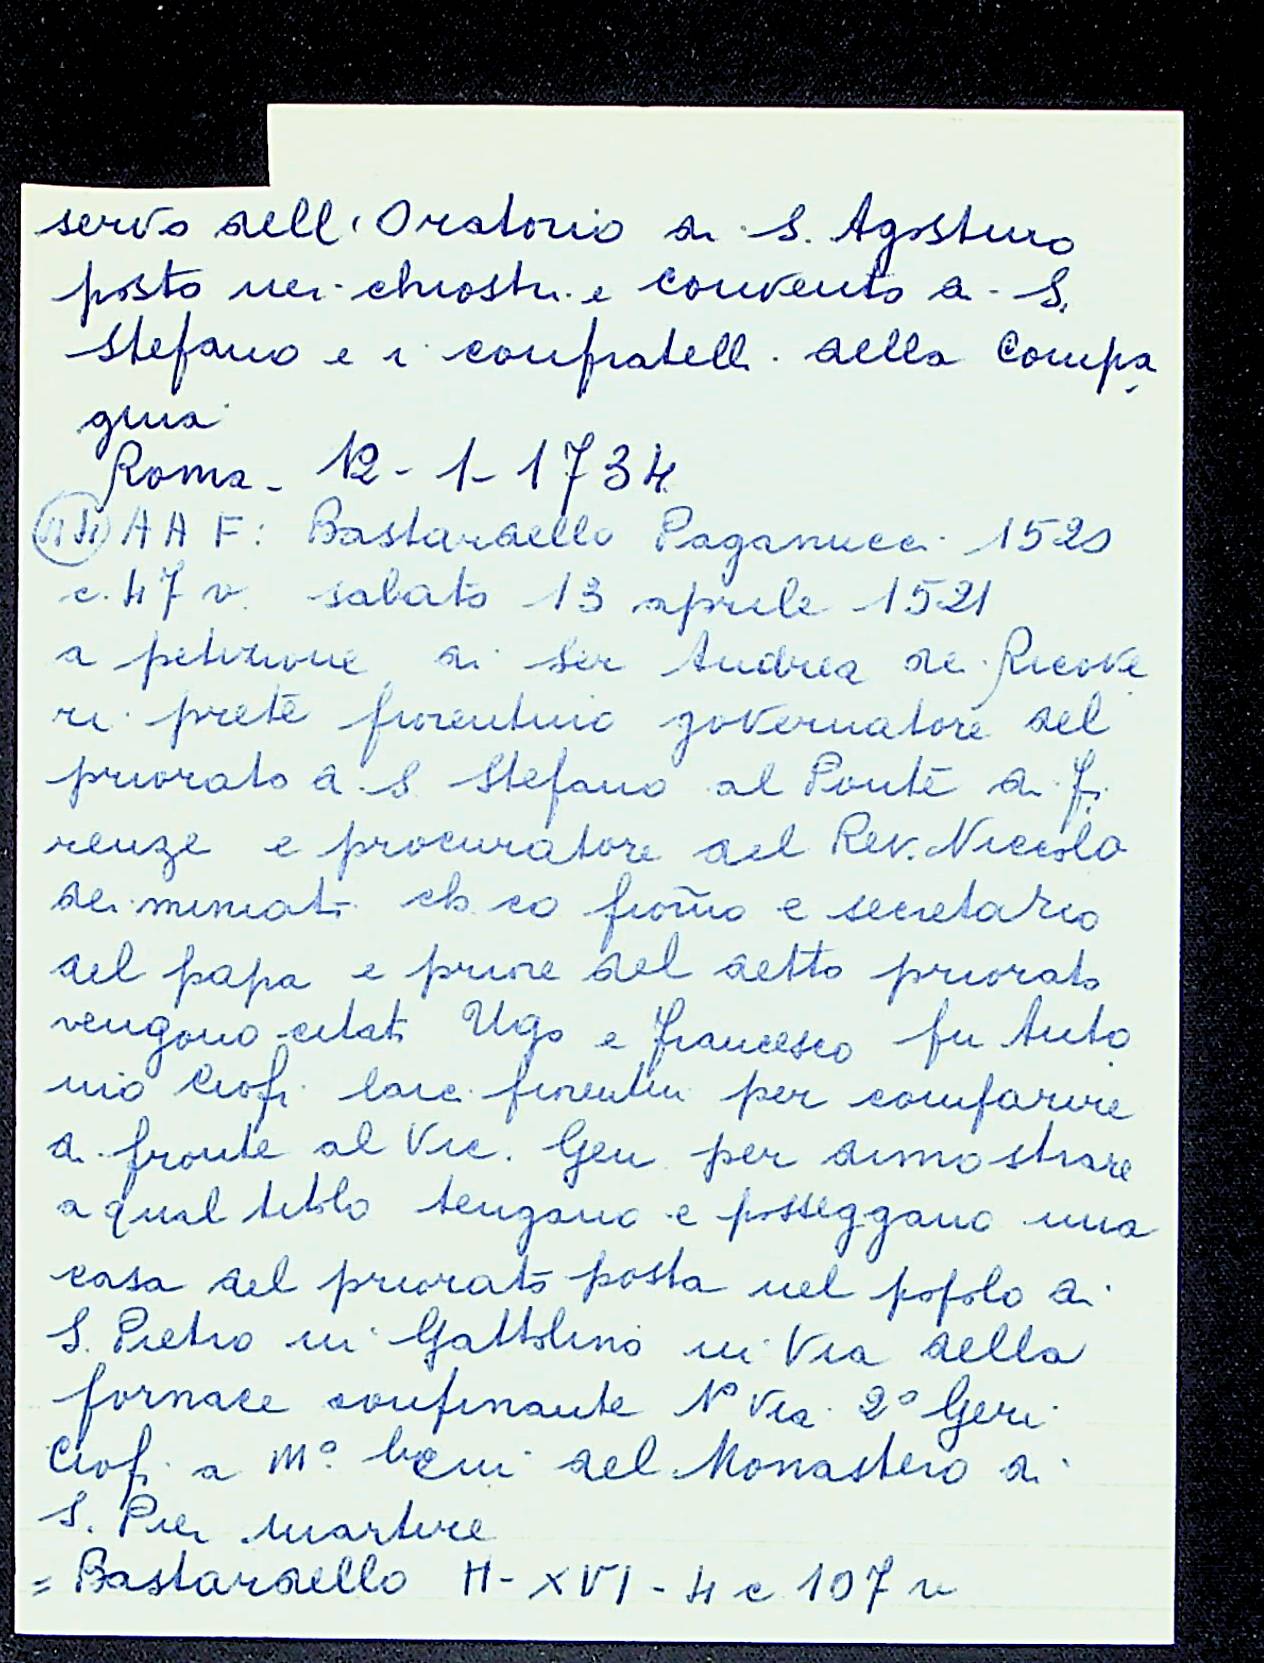 servo dell'Oratorio di S. Agostino
posto nei chiostri e convento di S.
Stefano e i confratelli della Compa
gnia
Roma - 12-1-1734
AAF: Bastardello Paganucci 1520
c. 47 v. sabato 13 aprile 1521
a petizione di Ser Andrea de Ricove
ri prete fiorentino governatore del
priorato di S. Stefano al Ponte di Fi
renze e procuratore del Rev. Niccolo
dei miniati ch co fior̃no e secretario
del papa e priore del detto priorato
vengono citati Ugo e Francesco fu Anto
nio Ciofi laici fiorentini per comparire
di fronte al Vic. Gen per dimostrare
a qual titolo tengano e posseggano una
casa del priorato posta nel popolo di
S. Pietro in Gattolino in Via della
fornace confinante 1º Via 2º Geri
Ciofi a m.º beni del Monastero di
S. Pier martire
= Bastardello H-XVI-4 c 107 v